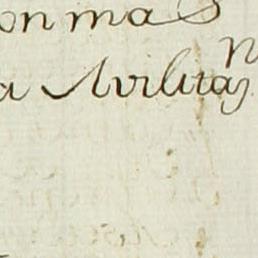 on mas
a Avilitas